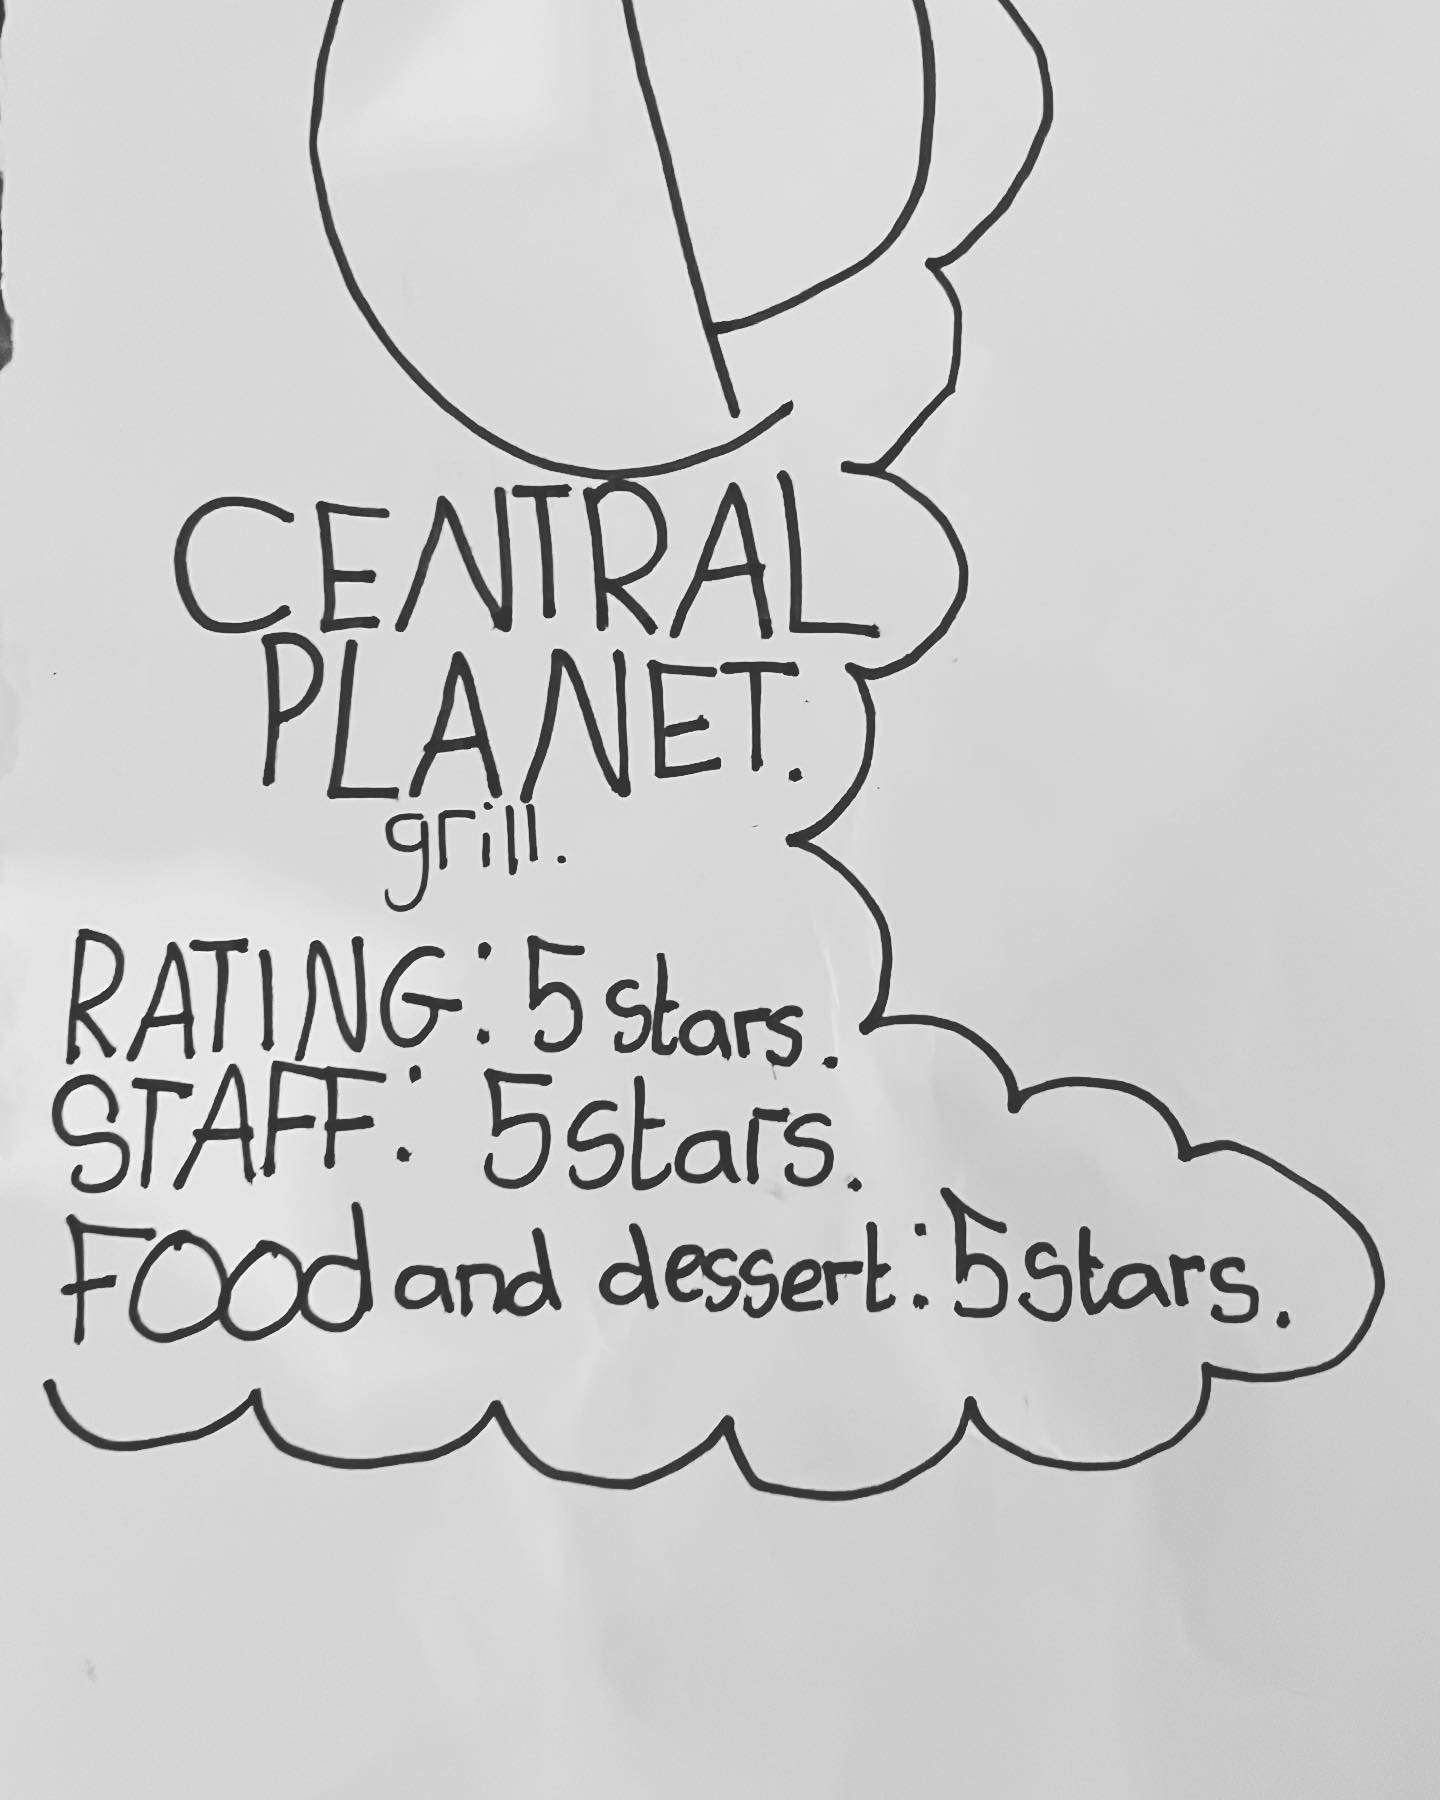 CENTRAL
PLANET.
grill.
RATING: 5 stars.
STAFF: 5 stars.
FOOd and dessert: 5 stars.